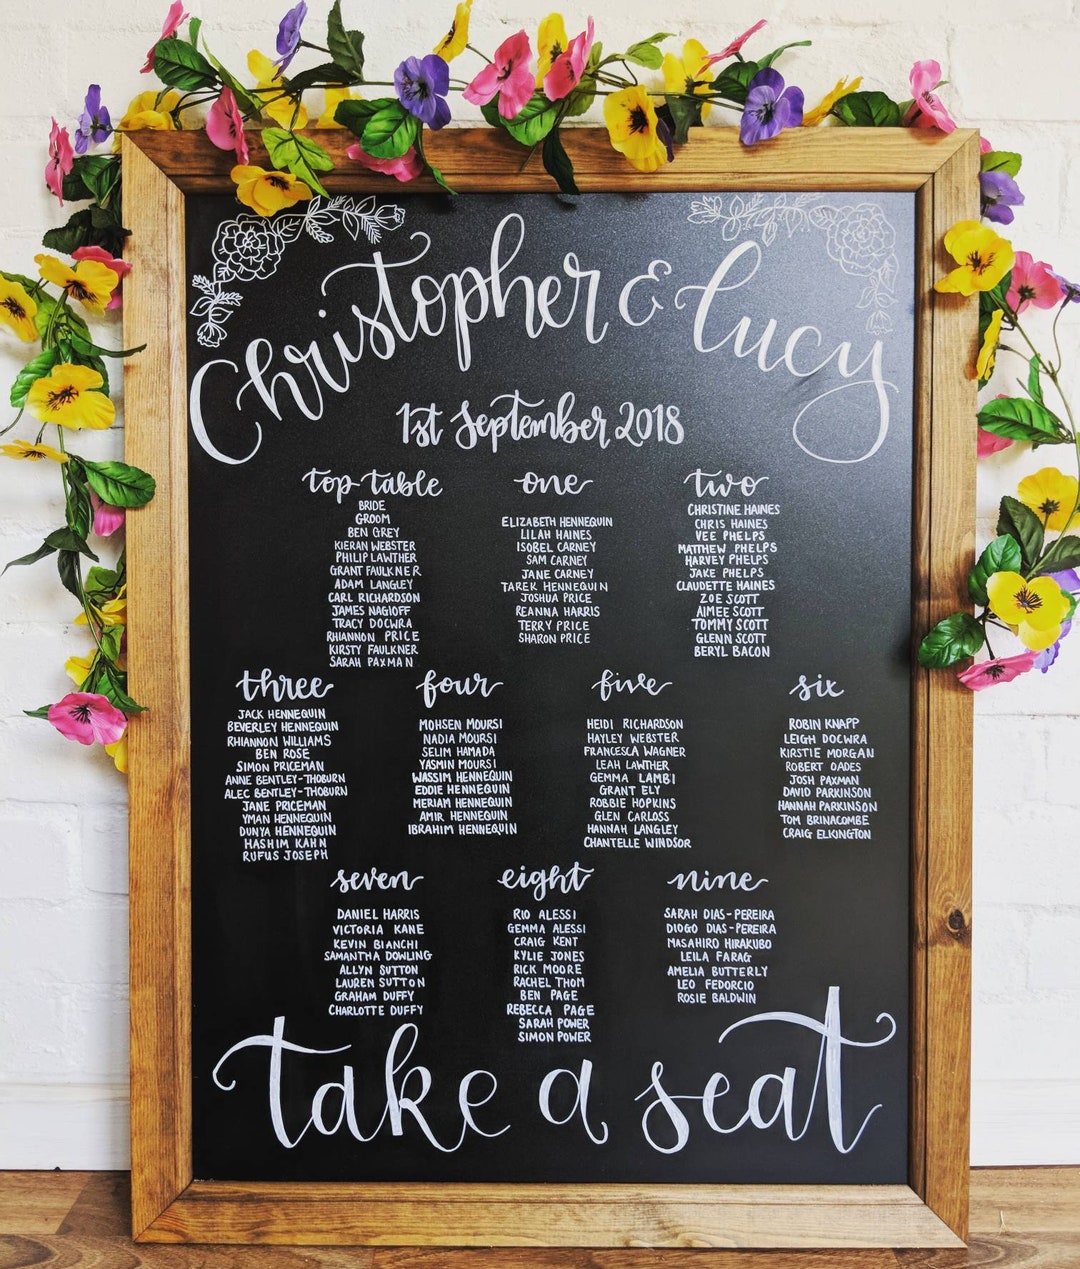 Christopher & Lucy
1st September 2018
top table
BRIDE
GROOM
BEN GREY
KIERAN WEBSTER
PHILIP LAWTHER
GRANT FAULKNER
ADAM LANGLEY
CARL RICHARDSON
JAMES NAGIOFF
TRACY DOCWRA
RHIANNON PRICE
KIRSTY FAULKNER
SARAH PAXMAN
one
ELIZABETH HENNEQUIN
LILAH HAINES
ISOBEL CARNEY
SAM CARNEY
JANE CARNEY
TAREK HENNEQUIN
JOSHUA PRICE
REANNA HARRIS
TERRY PRICE
SHARON PRICE
two
CHRISTINE HAINES
CHRIS HAINES
VEE PHELPS
MATTHEW PHELPS
HARVEY PHELPS
JAKE PHELPS
CLAUDETTE HAINES
ZOE SCOTT
AIMEE SCOTT
TOMMY SCOTT
GLENN SCOTT
BERYL BACON
three
JACK HENNEQUIN
BEVERLEY HENNEQUIN
RHIANNON WILLIAMS
BEN ROSE
SIMON PRICEMAN
ANNE BENTLEY-THOBURN
ALEC BENTLEY-THOBURN
JANE PRICEMAN
YMAN HENNEQUIN
DUNYA HENNEQUIN
HASHIM KAHN
RUFUS JOSEPH
four
MOHSEN MOURSI
NADIA MOURSI
SELIM HAMADA
YASMIN MOURSI
WASSIM HENNEQUIN
EDDIE HENNEQUIN
MERIAM HENNEQUIN
AMIR HENNEQUIN
IBRAHIM HENNEQUIN
five
HEIDI RICHARDSON
HAYLEY WEBSTER
FRANCESCA WAGNER
LEAH LAWTHER
GEMMA LAMBI
GRANT ELY
ROBBIE HOPKINS
GLEN CARLOSS
HANNAH LANGLEY
CHANTELLE WINDSOR
six
ROBIN KNAPP
LEIGH DOCWRA
KIRSTIE MORGAN
ROBERT OADES
JOSH PAXMAN
DAVID PARKINSON
HANNAH PARKINSON
TOM BRINACOMBE
CRAIG ELKINGTON
seven
DANIEL HARRIS
VICTORIA KANE
KEVIN BIANCHI
SAMANTHA DOWLING
ALLYN SUTTON
LAUREN SUTTON
GRAHAM DUFFY
CHARLOTTE DUFFY
eight
RIO ALESSI
GEMMA ALESSI
CRAIG KENT
KYLIE JONES
RICK MOORE
RACHEL THOM
BEN PAGE
REBECCA PAGE
SARAH POWER
SIMON POWER
nine
SARAH DIAS-PEREIRA
DIOGO DIAS-PEREIRA
MASAHIRO HIRAKUBO
LEILA FARAG
AMELIA BUTTERLY
LEO FEDORCIO
ROSIE BALDWIN
take a seat